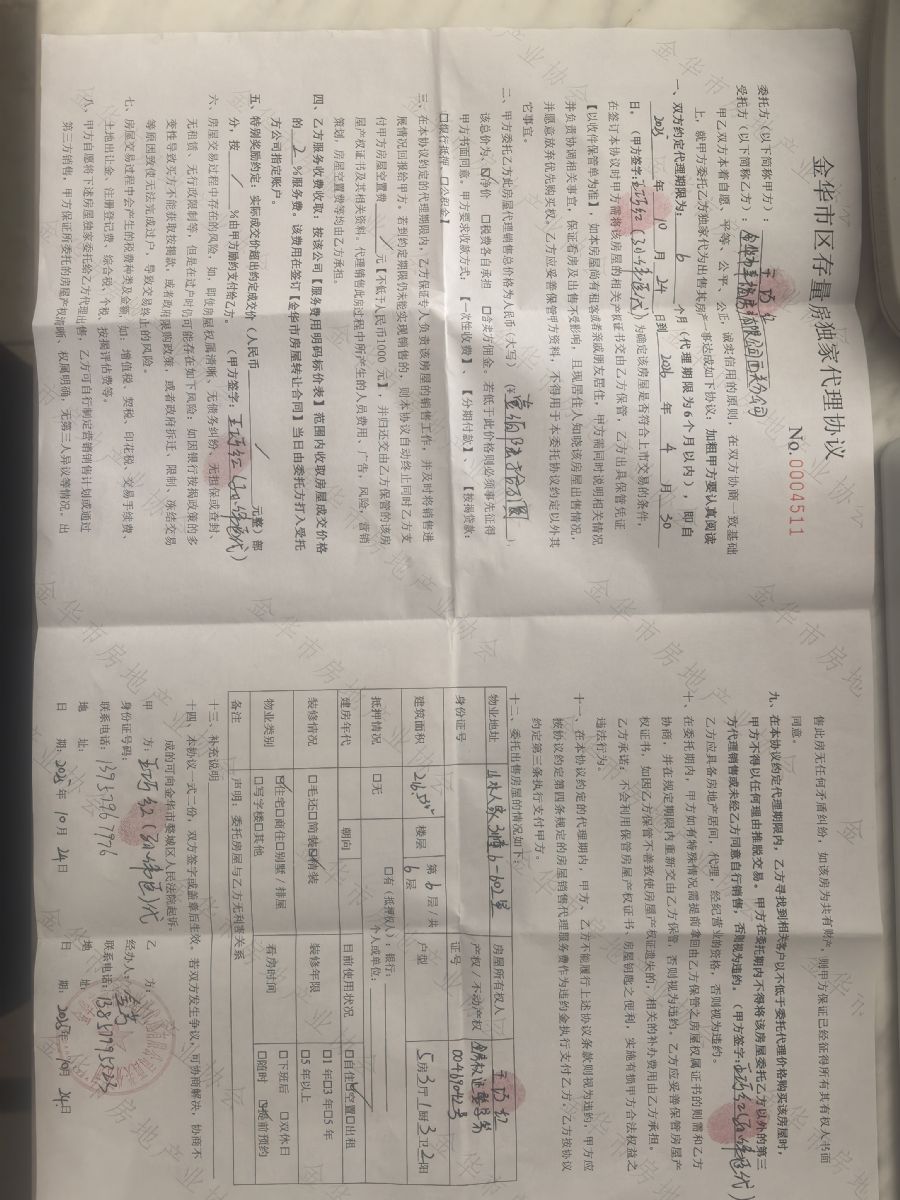 金华市区存量房独家代理协议
No.0004511
委托方（以下简称甲方）：
受托方（以下简称乙方）：
甲乙双方本着自愿、平等、公平、公正，诚实信用的原则，在双方协商一致基础
上，就甲方委托乙方独家代为出售其房产一事达成如下协议，加粗甲方要认真阅读
一、双方约定代理期限为： 6 个月（代理期限为6个月以内），即自
2025 年 10 月 24 日到 2026 年 4 月 30
日。（甲方签字：）为确定该房屋是否符合上市交易的条件，
在签订本协议时甲方需将该房屋的相关产权证书交由乙方保管，乙方出具保管凭证
【以收件收管单为准】，如本房屋尚有租客或者亲戚朋友居住，甲方需同时说明相关情况
并负责协调相关事宜，保证看房及出售不受影响，且现居住人知晓该房屋出售情况，
并愿意放弃优先购买权。乙方应妥善保管甲方资料，不得用于本委托协议约定以外其
它事宜。
二、甲方委托乙方此房屋代理销售总价格为人民币（大写）
该总价为：☑净价 □税费各自承担 □含卖方佣金，若低于此价格则必须事先征得
甲方书面同意。甲方要求收款方式：【一次性收费】、【分期付款】、【按揭贷款：
□银行抵押、□公积金】
三、在本协议约定的代理期限内，乙方保证专人负责该房屋的销售工作，并及时将销售进
展情况回馈给甲方。若到约定期限仍未能实现销售的，则本协议自动终止同时乙方支
付甲方房屋空置费 / 元【不低于人民币1000 元】，并归还交由乙方保管的该房
屋产权证书及其相关资料。代理销售此房过程中所产生的人员费用，广告，风险，营销
策划，房屋空置费等均由乙方承担。
四、乙方服务收费收取：按该公司【服务费用明码标价表】范围内收取房屋成交价格
的 2 %服务费。该费用在签订【金华市房屋转让合同】当日由委托方打入受托
方公司指定账户。
五、特别奖励约定：实际成交价超出约定成交价（人民币 / 元整）部
分，按 / %由甲方励约支付给乙方。（甲方签字：
六、房屋交易过程中存在的风险，如，即使房屋权属清晰、无债务纠纷、无担保或查封、
无租赁、无行政限制等，但是在过户时仍可能存在如下风险：如因银行按揭政策的多
变性导致买方不能获取按揭款，或者政府限购政策、或者政府拆迁、限制、冻结交易
等原因致使无法完成过户，导致交易终止的风险。
七、房屋交易过程中会产生的税费种类及金额，如：增值税、契税、印花税、交易手续费、
土地出让金、注册登记费、综合税、个税、按揭评估费等。
八、甲方自愿将下述房屋独家委托给乙方代理出售，乙方可自行制定营销销售计划或通过
第三方销售，甲方保证所委托的房屋产权清晰、权属明确，无第三人异议等情况，出
售此房无任何矛盾纠纷，如该房为共有财产，则甲方保证已经征得所有共有权人书面
同意。
九、在本协议约定代理期限内，乙方寻找到相关客户以不低于委托代理价格购买该房屋时，
甲方不得以任何理由推脱交易。甲方在委托期内不得将该房屋委托乙方以外的第三
方代理销售或未经乙方同意自行销售，否则视为违约。（甲方签字：
乙方应具备房地产居间，代理，经纪营业的资格，否则视为违约。
十、在委托期内，甲方如有特殊情况需提前拿回由乙方保管之房屋权属证书的则需和乙方
协商，并在规定期限内重新交由乙方保管，否则视为违约。乙方应妥善保管房屋产
权证书，如因乙方保管不善致使房屋产权证遗失的，相关的补办费用由乙方承担。
乙方承诺：不会利用保管房屋产权证书，房屋钥匙之便利，实施有损甲方合法权益之
违法行为。
十一、在本协议约定的代理期内，甲方、乙方不能履行上述协议条款则视为违约，甲方应
按协议约定第四条规定的房屋销售代理服务费作为违约金执行支付乙方，乙方按协议
约定第三条执行支付甲方。
十二、委托出售房屋的情况如下：
物业地址 3幢6-602室 房屋所有权人
身份证号 产权/不动产权证号 00469042号
建筑面积 楼层 第 6 层/共 6 层 户型 5房3厅1厨3卫2阳
抵押情况 □无 □有（抵押权人）：银行： 个人或单位：
建房年代 朝向 目前使用状况 □自住☑空置□出租
装修情况 □毛坯□简装☑精装 装修年限 □1年□3年□5年 □5年以上
物业类别 ☑住宅□商住□别墅/排屋 □写字楼□其他 看房时间 □下班后 □双休日 □随时 ☑提前预约
备注 声明：委托房屋与乙方无利害关系
十三、补充说明
十四、本协议一式二份，双方签字或盖章后生效。若双方发生争议，可协商解决，协商不
成的可向金华市婺城区人民法院起诉。
甲 方： 乙 方：
身份证号码： 经办人：
联系电话：13957967776 联系电话：13857995523
地 址： 地 址：
日 期：2025年10月24日 日 期：2025年10月24日